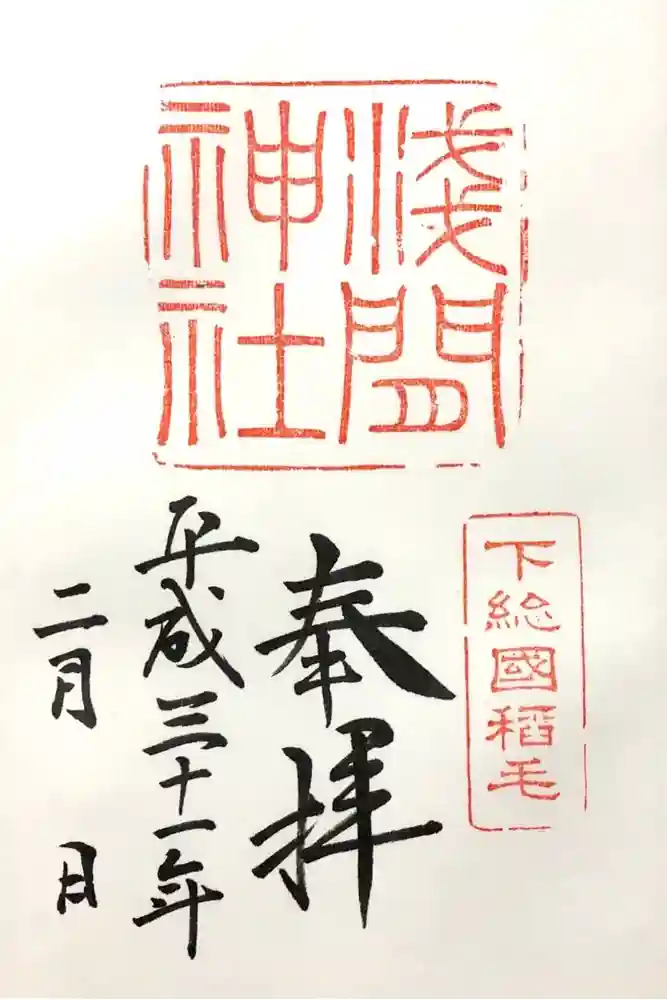 浅間
神社
下総國稲毛
奉拝
平成三十一年
二月 日